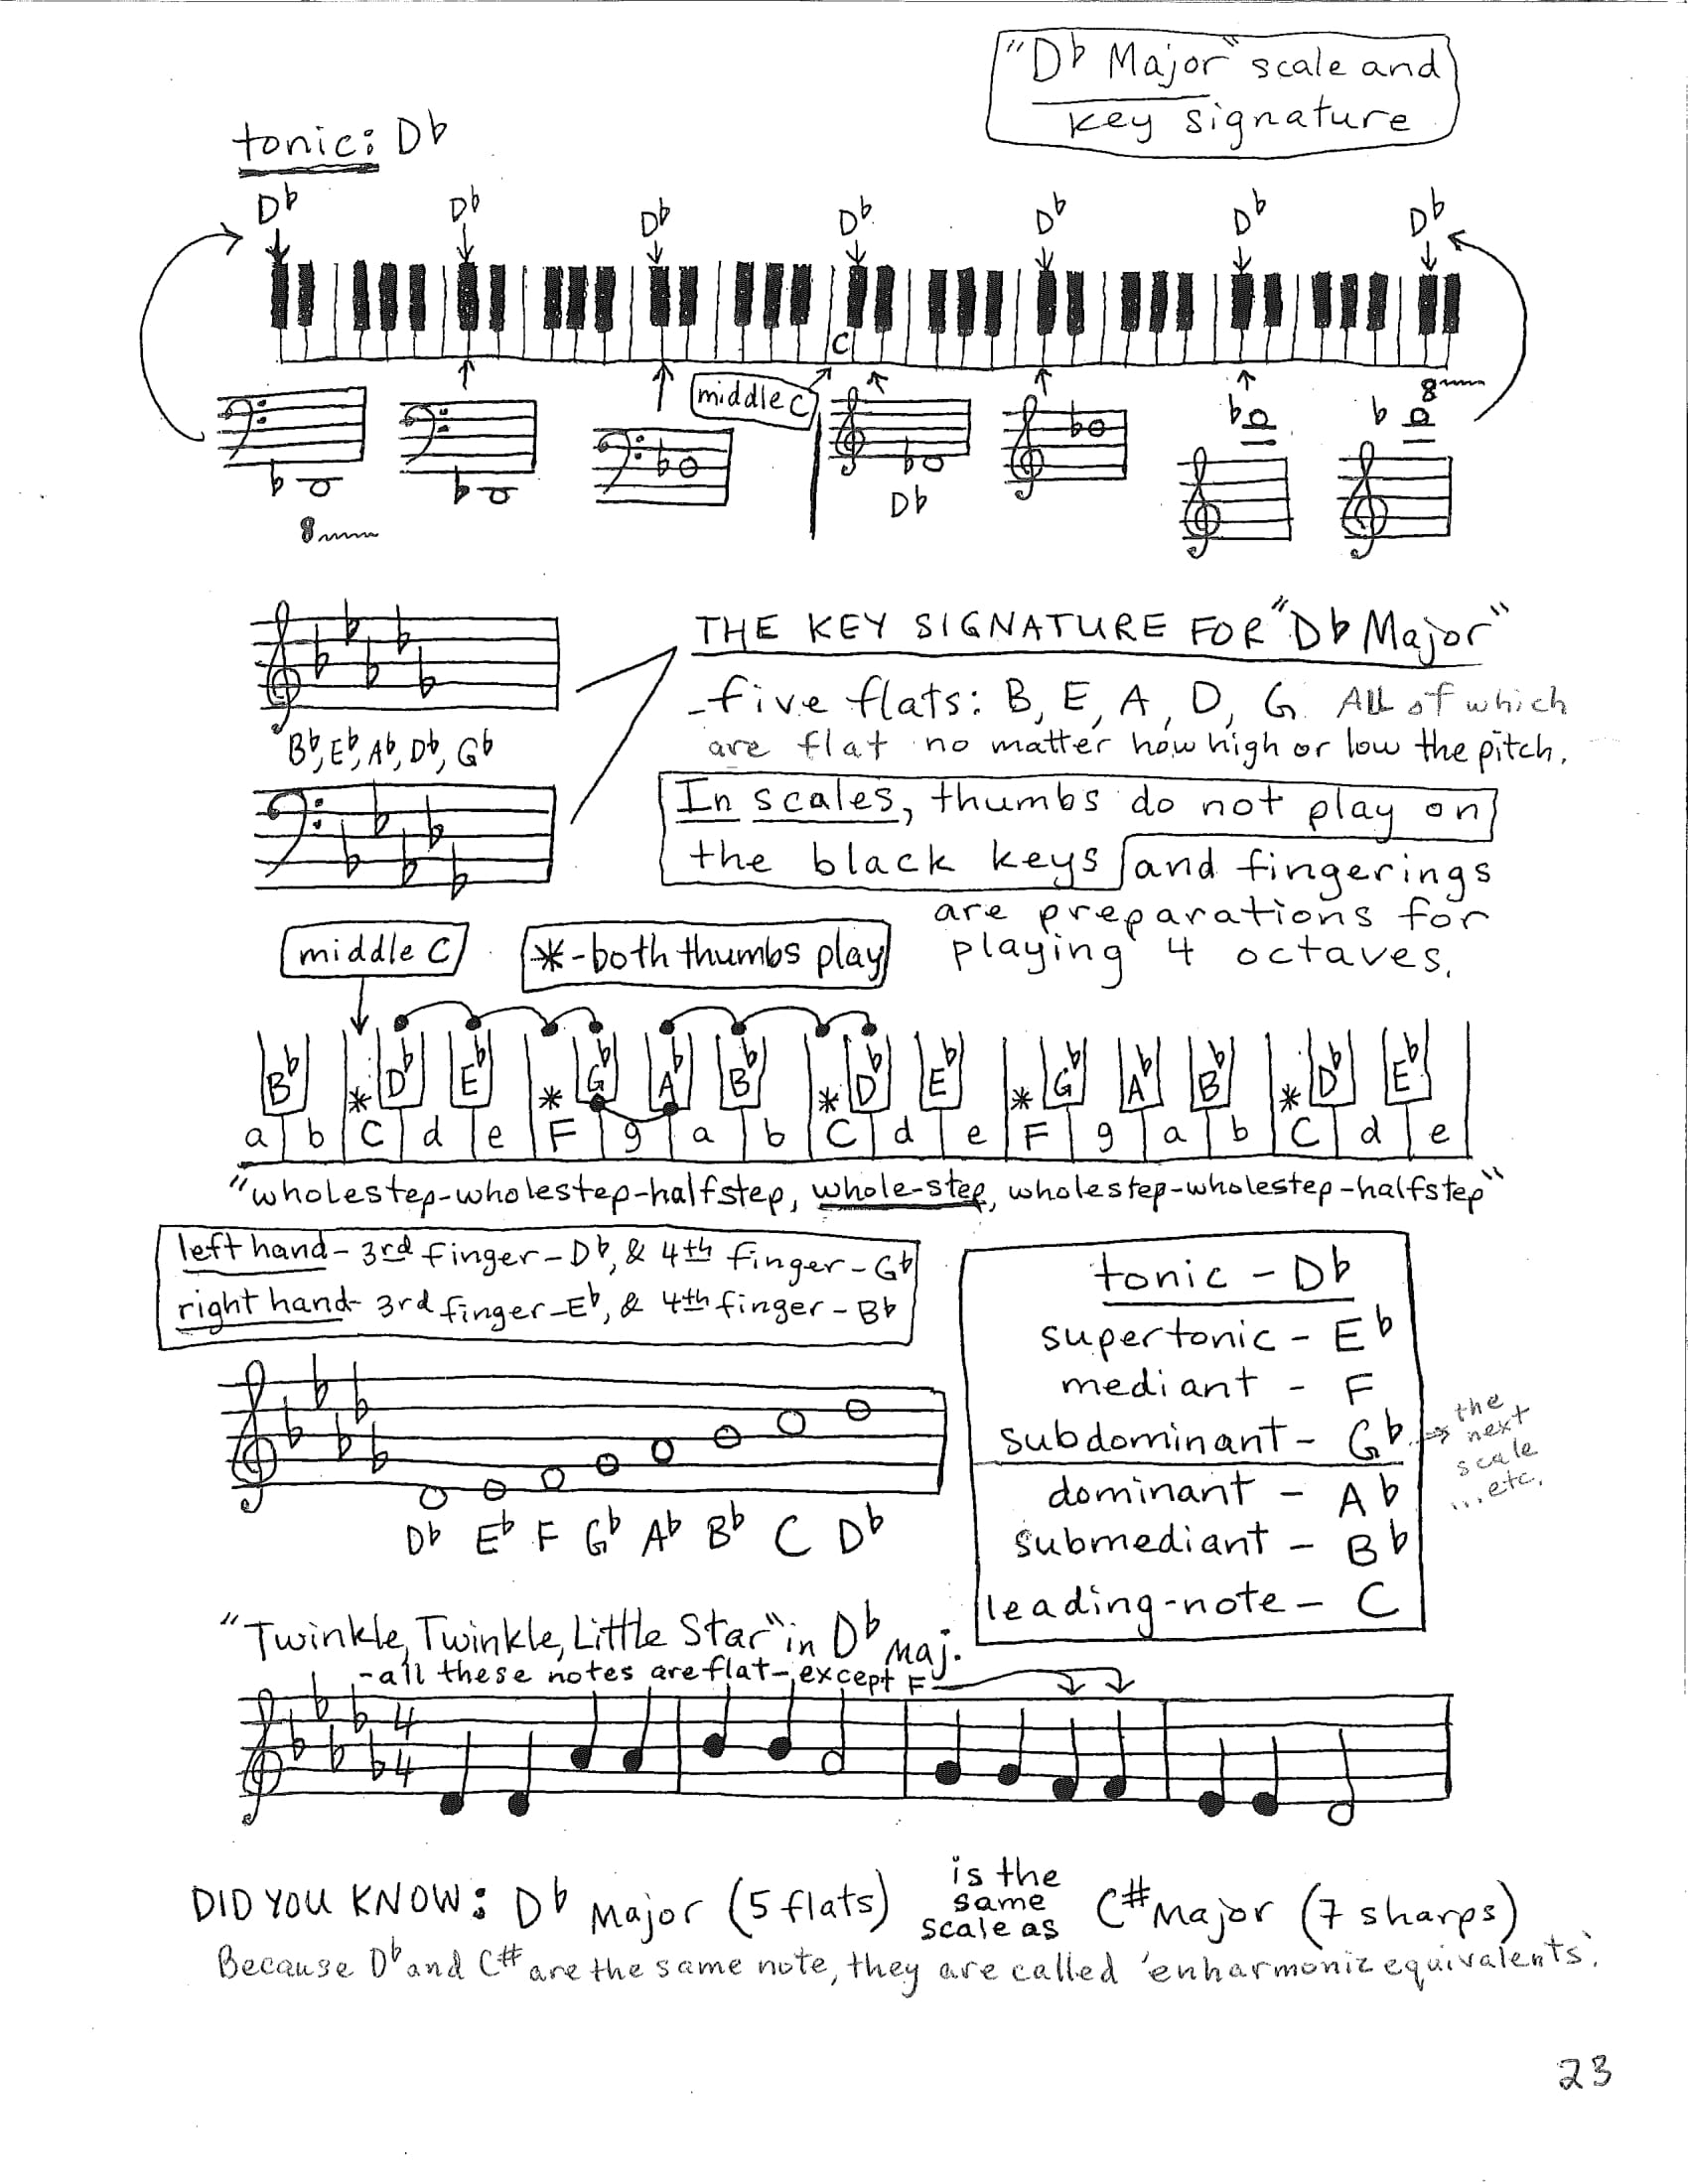 "D♭ Major" scale and
key signature
tonic: D♭
D♭ D♭ D♭ D♭ D♭ D♭ D♭
C
middle C
8
D♭
8
THE KEY SIGNATURE FOR "D♭ Major"
- five flats: B, E, A, D, G. All of which
are flat no matter how high or low the pitch.
B♭, E♭, A♭, D♭, G♭
In scales, thumbs do not play on
the black keys and fingerings
are preparations for
playing 4 octaves.
middle C
*-both thumbs play
B♭ * D♭ E♭ * G♭ A♭ B♭ * D♭ E♭ * G♭ A♭ B♭ * D♭ E♭
a b C d e F g a b C d e F g a b C d e
"wholestep-wholestep-halfstep, whole-step, wholestep-wholestep-halfstep"
left hand- 3rd finger-D♭, & 4th finger-G♭
right hand- 3rd finger-E♭, & 4th finger-B♭
tonic - D♭
supertonic - E♭
mediant - F
subdominant - G♭ → the next scale ...etc.
dominant - A♭
submediant - B♭
leading-note - C
D♭ E♭ F G♭ A♭ B♭ C D♭
"Twinkle, Twinkle, Little Star" in D♭ Maj.
-all these notes are flat-except F
4
4
DID YOU KNOW: D♭ Major (5 flats) is the same scale as C# Major (7 sharps)
Because D♭ and C# are the same note, they are called 'enharmoniz equivalents'.
23